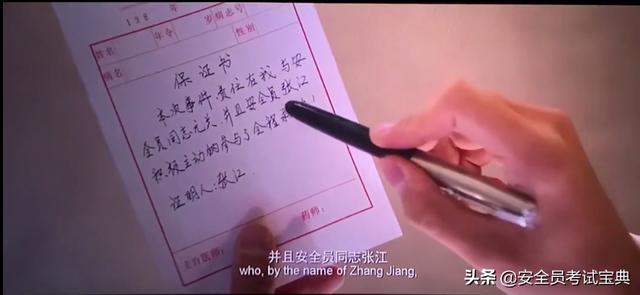 198 年
姓名: 年令 岁病志号
病名: 性别
保证书
本次事件,责任在我与安
全员同志无关.并且安全员张江
积极主动的参与了全程
证明人:张江
药师:
主治医师:
并且安全员同志张江
who, by the name of Zhang Jiang,
头条 @安全员考试宝典